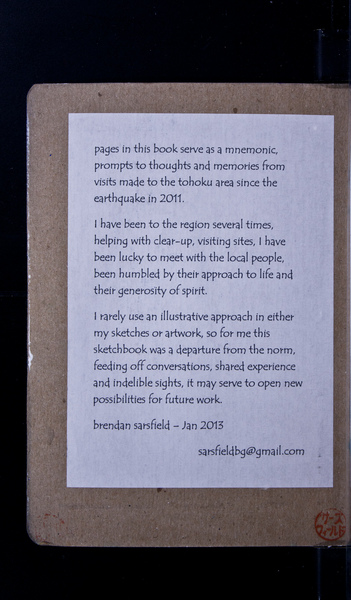 pages in this book serve as a mnemonic,
prompts to thoughts and memories from
visits made to the tohoku area since the
earthquake in 2011.
I have been to the region several times,
helping with clear-up, visiting sites, I have
been lucky to meet with the local people,
been humbled by their approach to life and
their generosity of spirit.
I rarely use an illustrative approach in either
my sketches or artwork, so for me this
sketchbook was a departure from the norm,
feeding off conversations, shared experience
and indelible sights, it may serve to open new
possibilities for future work.
brendan sarsfield – Jan 2013
sarsfieldbg@gmail.com